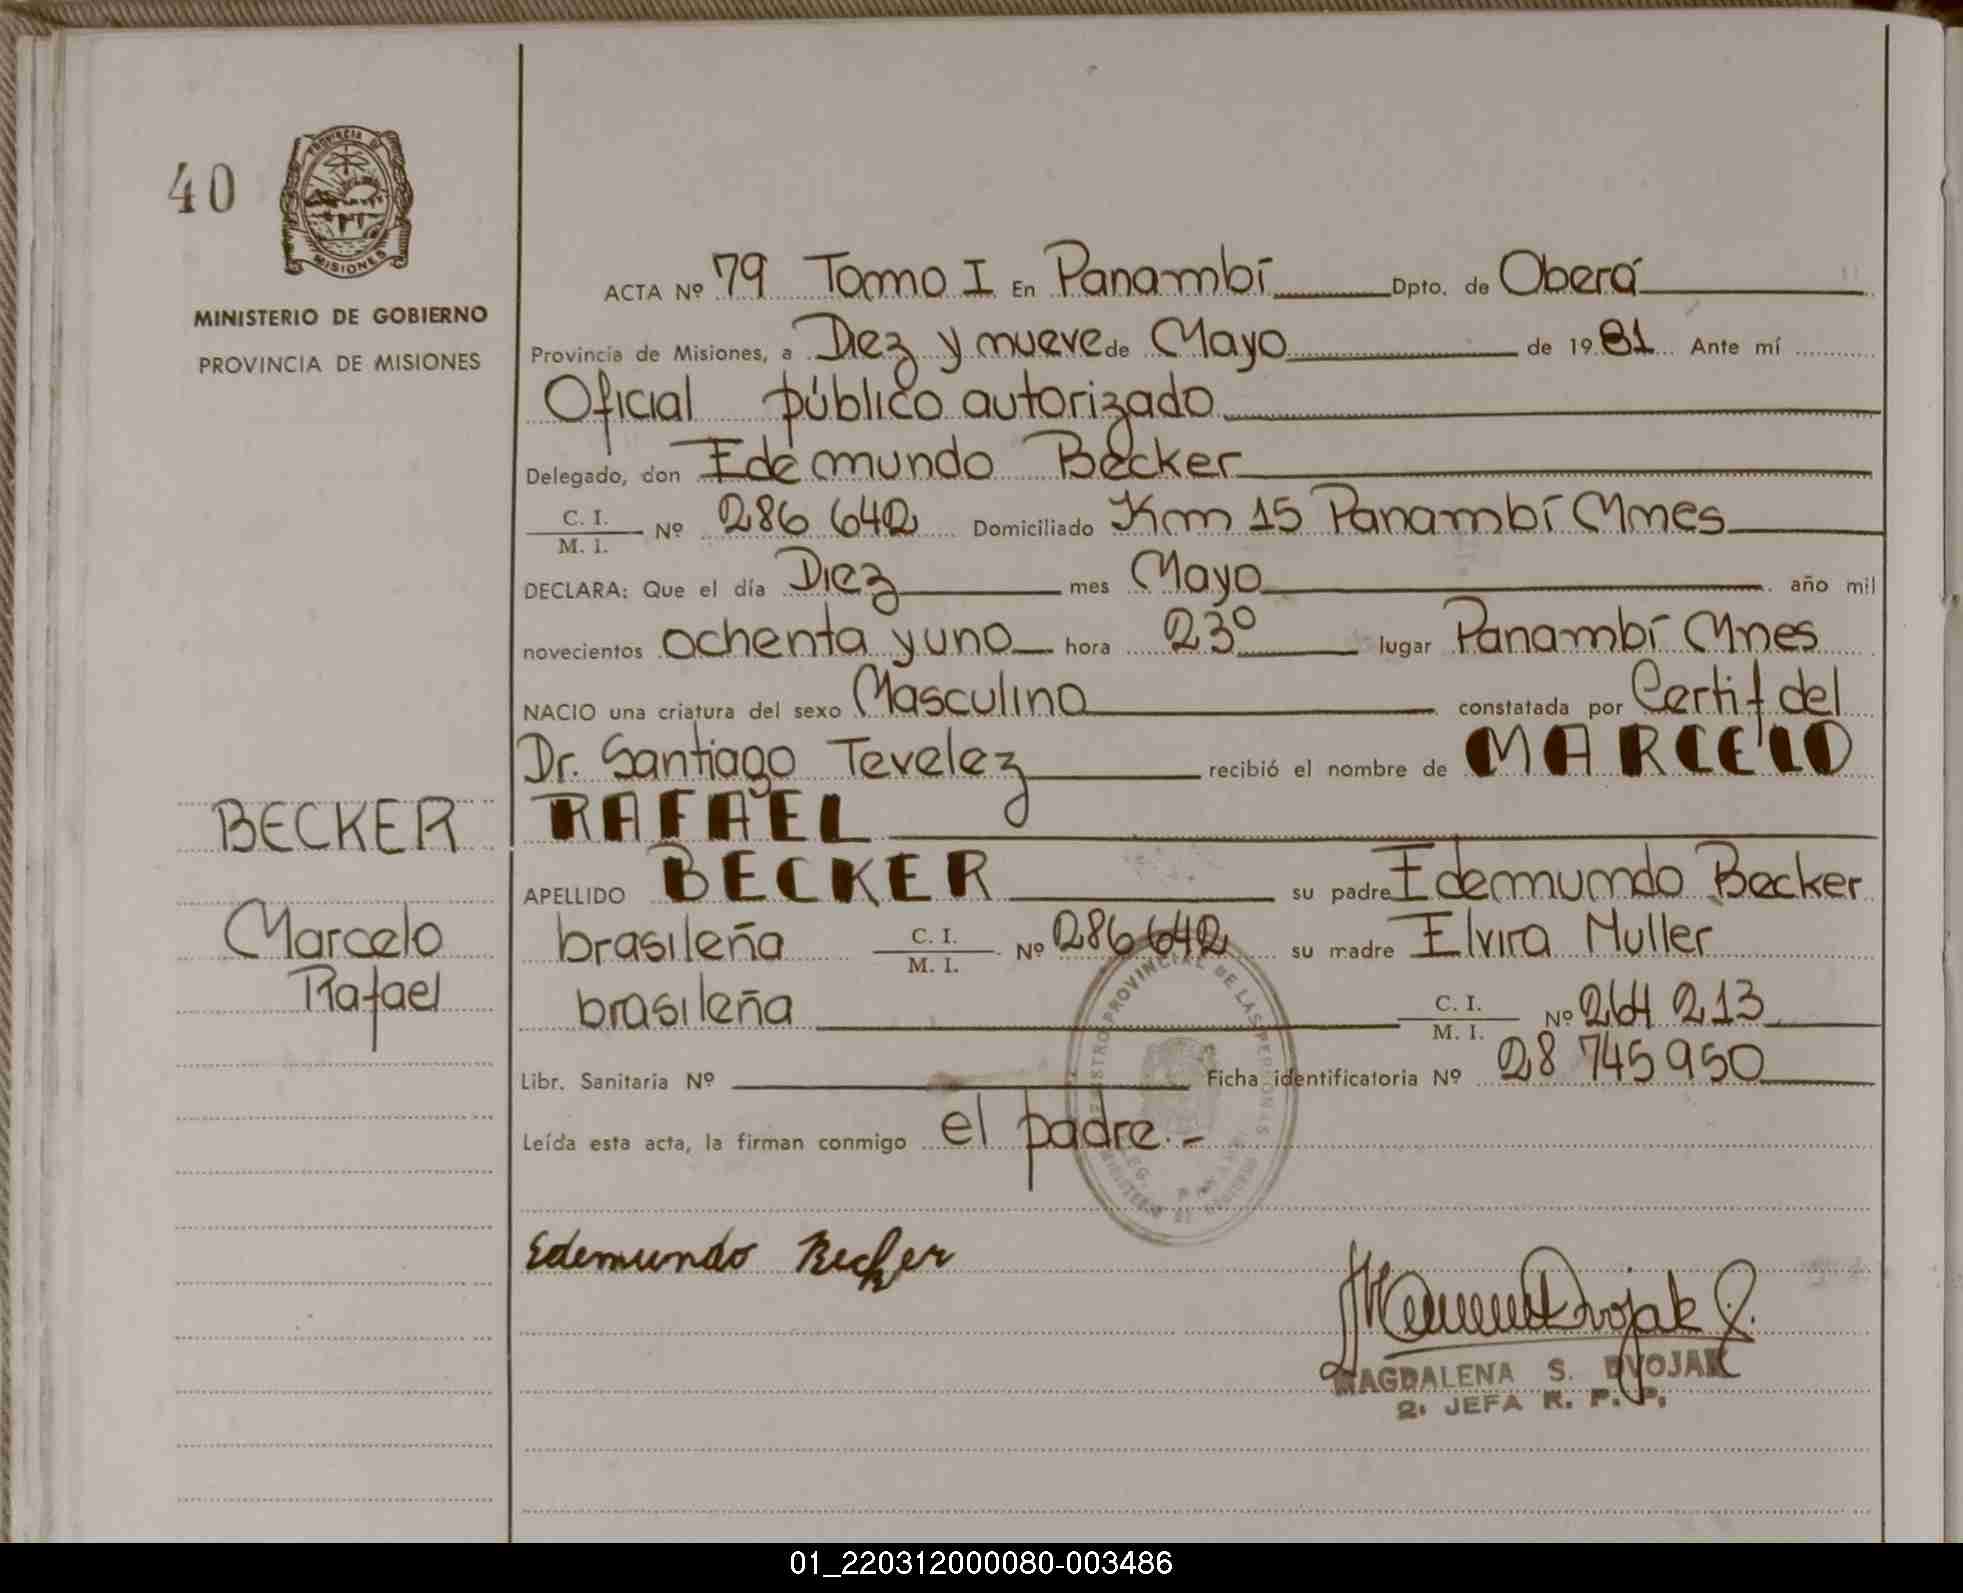 40
PROVINCIA DE
MISIONES
MINISTERIO DE GOBIERNO
PROVINCIA DE MISIONES
BECKER
Marcelo
Rafael
ACTA Nº 79 Tomo I En Panambí Dpto. de Oberá
Provincia de Misiones, a Diez y nueve de Mayo de 1981 Ante mí
Oficial público autorizado
Delegado, don Edemundo Becker
C. I.
M. I. Nº 286 642 Domiciliado Km 15 Panambí Mnes
DECLARA: Que el día Diez mes Mayo año mil
novecientos ochenta y uno hora 23º lugar Panambí Mnes
NACIO una criatura del sexo Masculino constatada por Certif del
Dr. Santiago Tevelez recibió el nombre de MARCELO
RAFAEL
APELLIDO BECKER su padre Edemundo Becker
brasileña C. I.
M. I. Nº 286 642 su madre Elvira Muller
brasileña C. I.
M. I. Nº 264 213
Libr. Sanitaria Nº Ficha identificatoria Nº 28 745950
Leída esta acta, la firman conmigo el padre.-
REGISTRO PROVINCIAL DE LAS PERSONAS
Edemundo Becker
Dvojak
MAGDALENA S. DVOJAK
2. JEFA R. P. P.
01_220312000080-003486